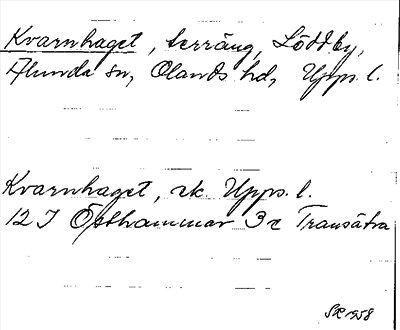 Kvarnhaget, terräng, Löddby,
Alunda sn, Olands hd, Upps. l.
Kvarnhaget, rk. Upps. l.
12 I Östhammar 3 c Transätra
SR 1958